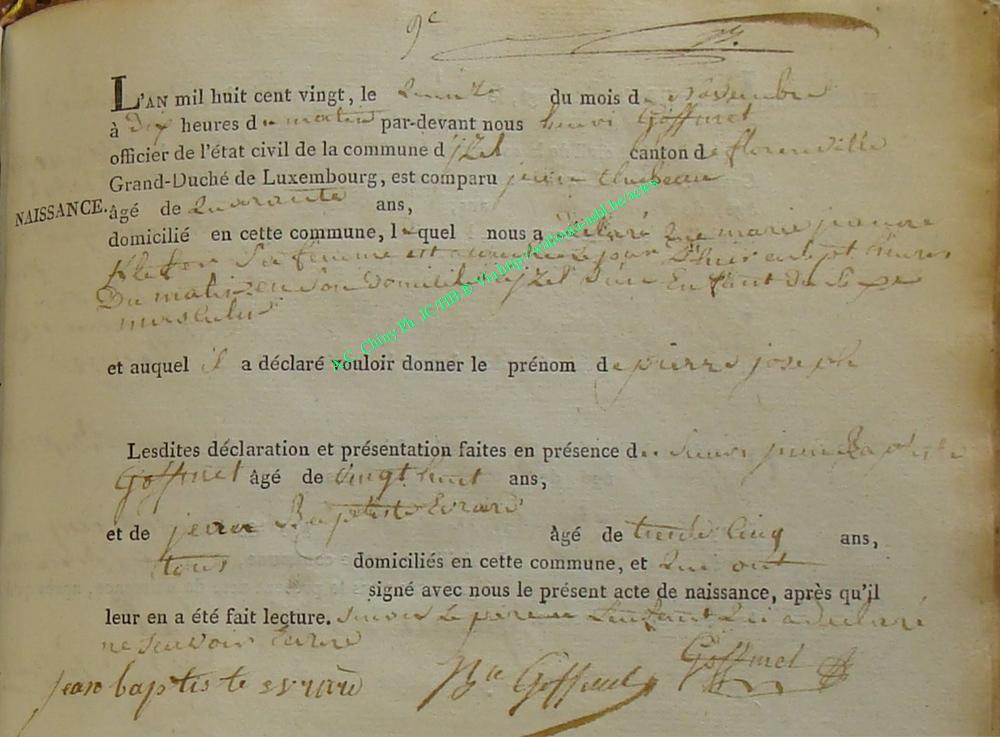 9e
L'AN mil huit cent vingt, le quinze du mois de Novembre
à dix heures du matin par-devant nous henri Goffinet
officier de l'état civil de la commune d jzel canton de florenville
Grand-Duché de Luxembourg, est comparu jean
NAISSANCE. âgé de quarante ans,
domicilié en cette commune, lequel nous a déclaré que marie jeanne
sa femme est accouchée jour d'hier a sept heures
Du matin en son domicile a jzel d'un Enfant du Sexe
masculin
et auquel il a déclaré vouloir donner le prénom de pierre joseph
Lesdites déclaration et présentation faites en présence de Sieurs jean Baptiste
Goffinet âgé de vingt huit ans,
et de jean Baptiste Evrard âgé de trente cinq ans,
tous domiciliés en cette commune, et qui ont
signé avec nous le présent acte de naissance, après qu'il
leur en a été fait lecture. Le pere de L'enfant qui a declaré
ne scavoir Ecrire
jean baptiste evrard Goffinet Goffinet
S.C. Chiny Ph. JC/HB © Via http://wallonia.nsbl.be/actes